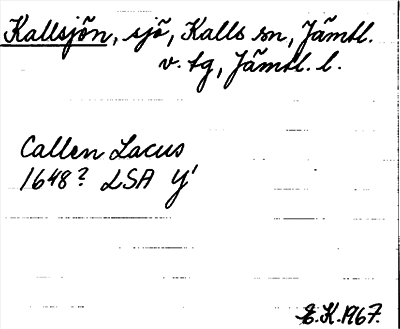 Kallsjön, sjö, Kalls sn, Jämtl.
v. tg, Jämtl. l.
Callen Lacus
1648? LSA Y'
E.K. 1967.